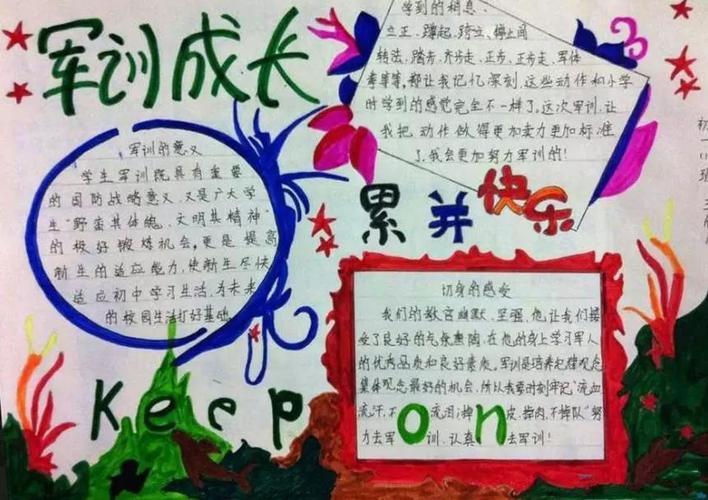 军训成长
学到的栖息、
立正、蹲起、跨立、停止间
转法、踏步、齐步走、正步、正步走、军体
拳等等,都让我记忆深刻,这些动作和小学
时学到的感觉完全不一样了,这次军训,让
我把动作做得更加卖力更加标准
了,我会更加努力军训的!
军训的意义
学生军训既具有重要
的国防战略意义,又是广大学
生“野蛮其体魄,文明其精神”
的极好锻炼机会,更是提高
新生的适应能力,使新生尽快
适应初中学习生活,为未来
的校园生活打好基础
累并快乐
切身的感受
我们的教官幽默、坚强,他让我们接
受了良好的气氛熏陶,在他的身上学习军人
的优秀品质和良好素质,军训是培养纪律观念
集体观念最好的机会,所以我要时刻牢记“流血
流汗,不流泪,掉皮,掉肉,不掉队”努
力去军训,认真去军训!
Keep on
初
一
班